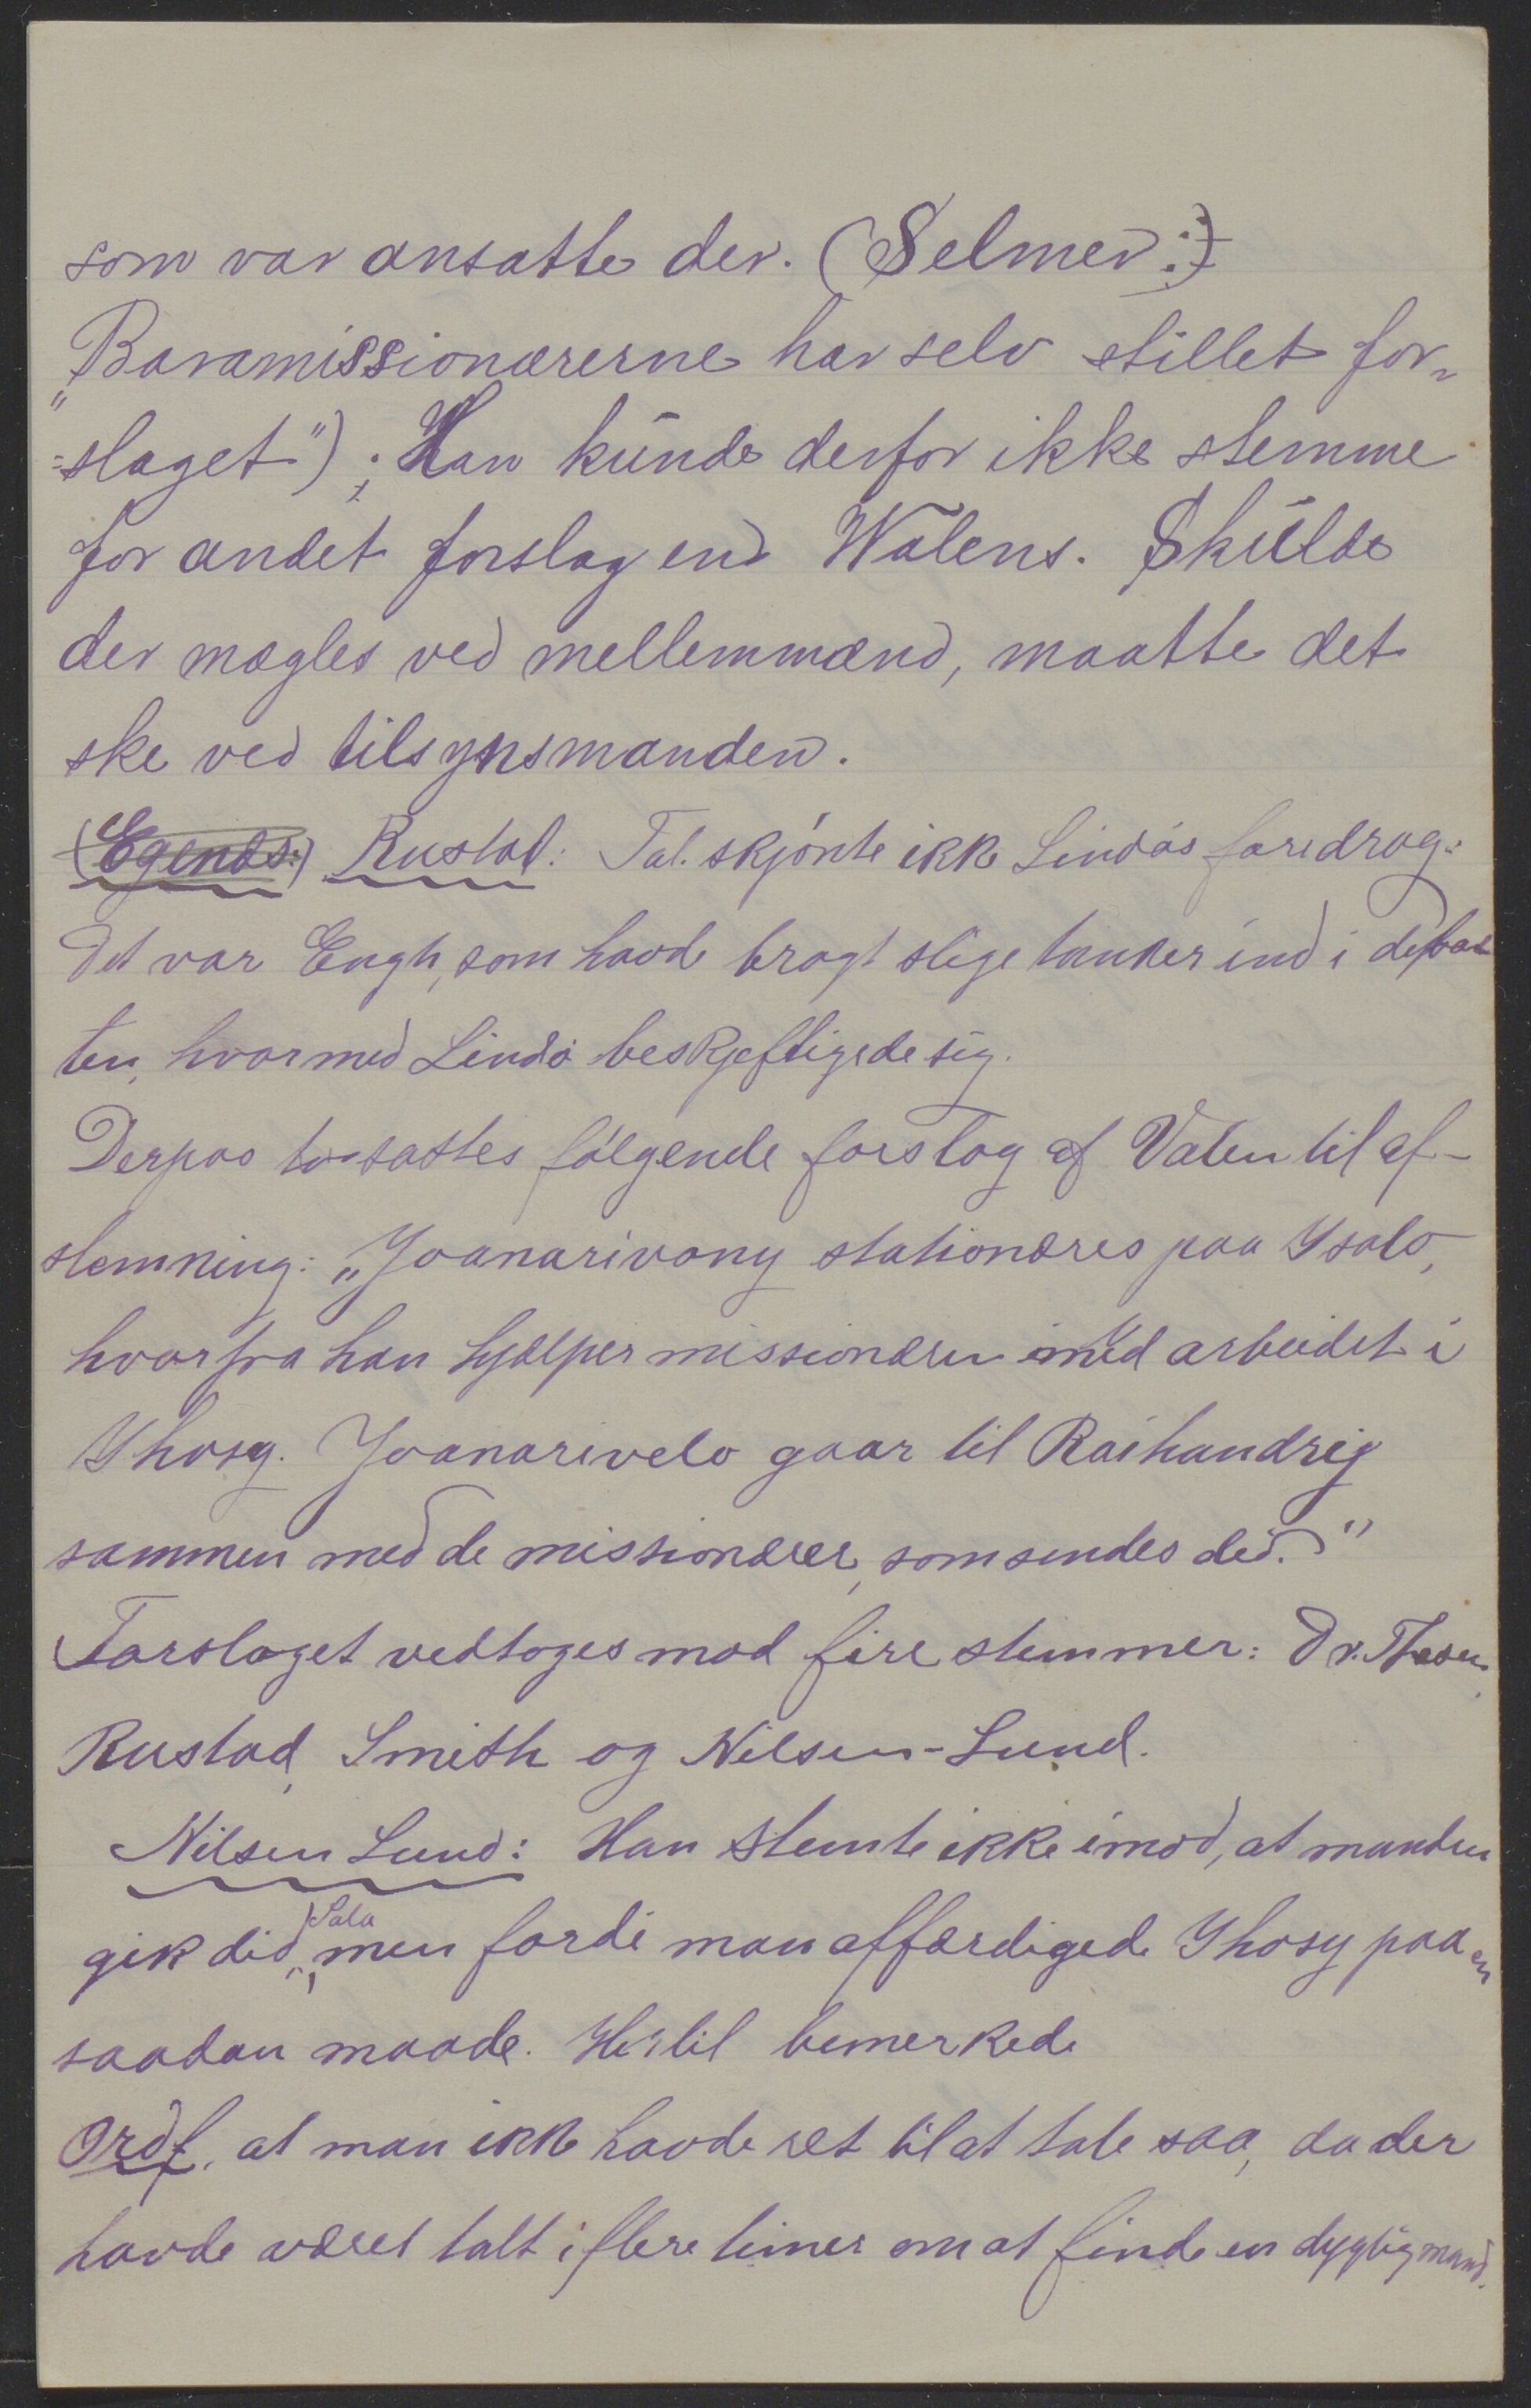 som var ansatte der. (Selmer:)
"Baramissionærerne har selv stillet for-
=slaget"); Han kunde derfor ikke stemme
for andet forslag end Walens. Skulde
der mægles ved mellemmænd, maatte det
ske ved tilsynsmanden.
(Egenæs:) Rustad: Tal. skjønte ikke Lindøs foredrag:
Det var Engh, som havde bragt slige tanker ind i debat
ten, hvormed Lindø beskjeftigede sig.
Derpaa tosattes følgende forslag af Valen til af-
stemning: „Joanarivony stationæres paa Ysalo,
hvorfra han hjælper missionæren med arbeidet i
Yhosy. Joanarivelo gaar til Raihandrig
sammen med de missionærer, som sendes did."
Forslaget vedtoges mod fire stemmer: Dr. Thesen,
Rustad, Smith og Nilsen-Lund.
Nilsen Lund: Han stemte ikke imod, at manden
gik did, men fordi man affærdigede Yhosy paa en
saadan maade. Hertil bemerkede
Ordf. at man ikke havde ret til at tale saa, da der
havde været talt i flere timer om at finde en dygtig mand.